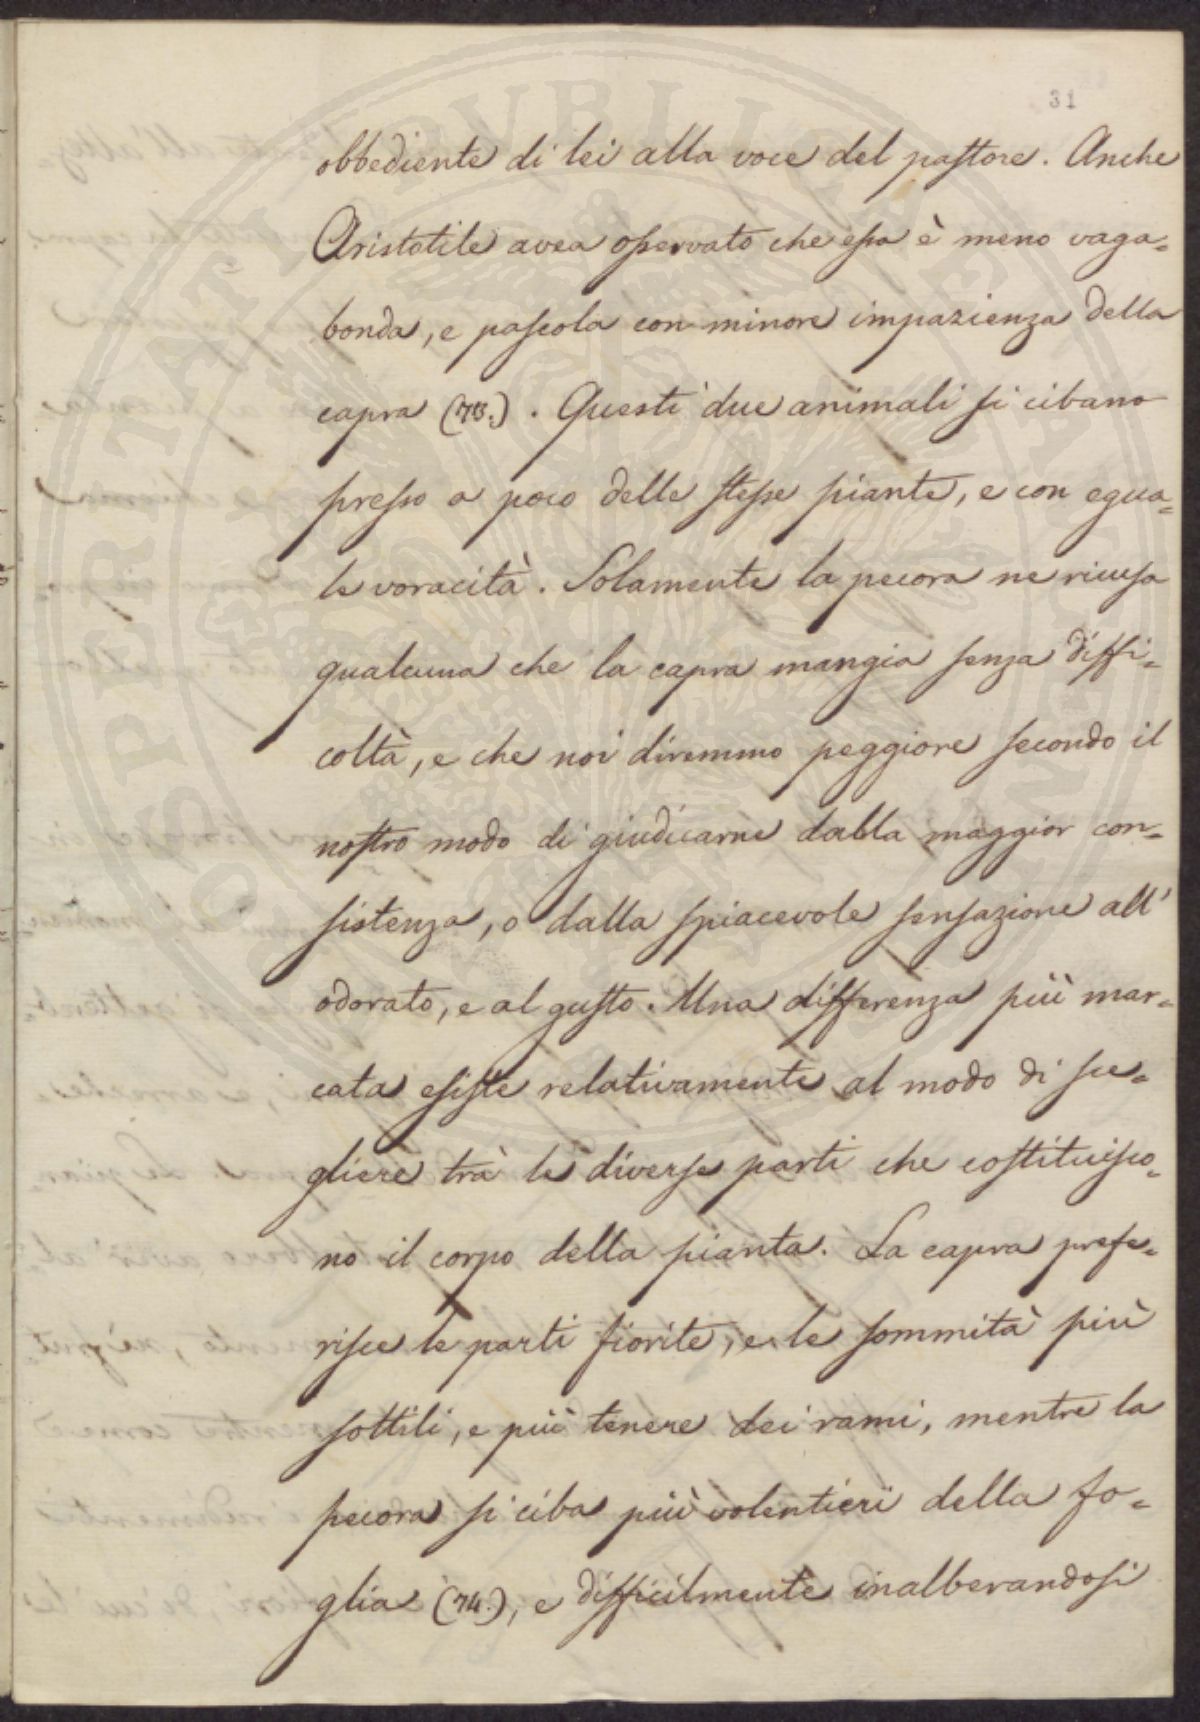 31
obbediente di lei alla voce del pastore. Anche
Aristotile avea osservato che essa è meno vaga=
bonda, e pascola con minore impazienza della
capra (73.). Questi due animali si cibano
presso a poco delle stesse piante, e con egua=
le voracità. Solamente la pecora ne ricusa
qualcuna che la capra mangia senza diffi=
coltà, e che noi diremmo peggiore secondo il
nostro modo di giudicarne dalla maggior con=
sistenza, o dalla spiacevole sensazione all'
odorato, e al gusto. Una differenza più mar=
cata esiste relativamente al modo di sce=
gliere trà le diverse parti che costituisco=
no il corpo della pianta. La capra prefe=
risce le parti fiorite, e le sommità più
sottili, e più tenere dei rami, mentre la
pecora si ciba più volentieri della fo=
glia (74.), e difficilmente inalberandosi